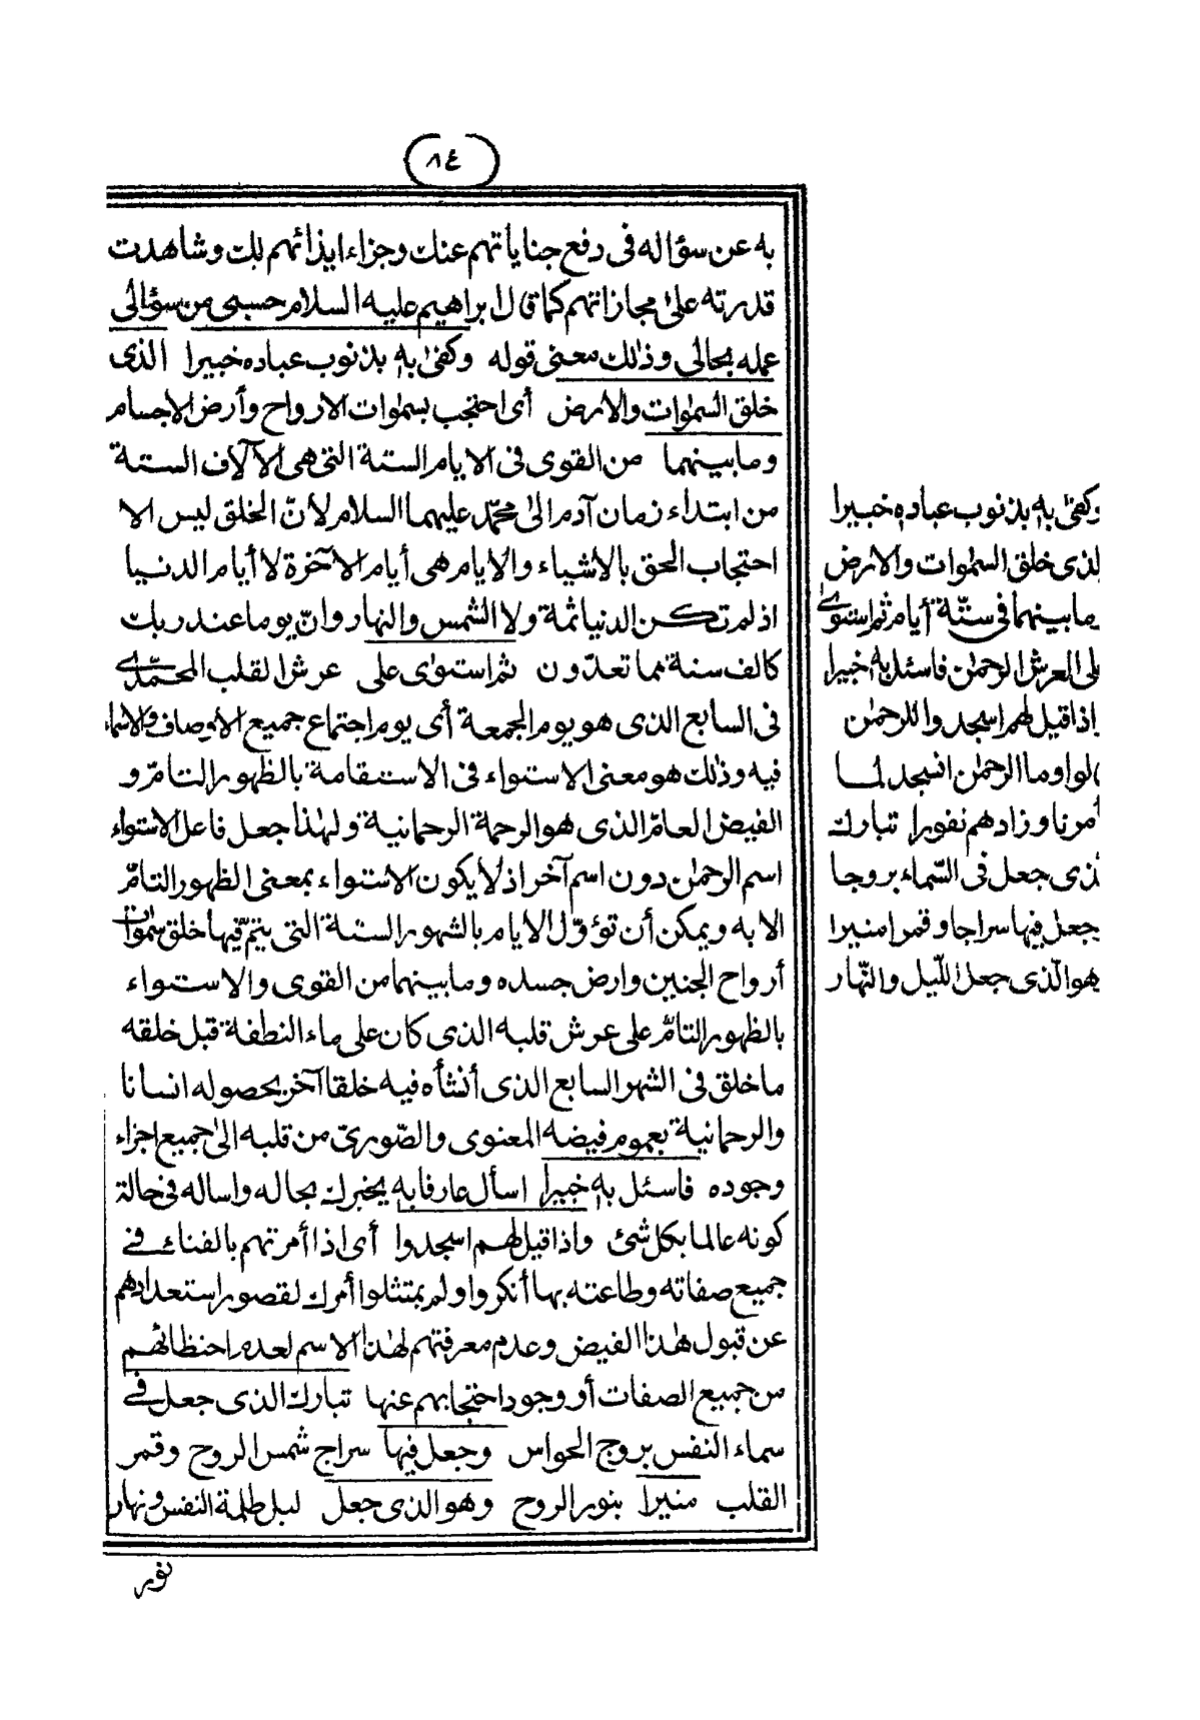 ٨٤
به عن سؤاله فى دفع جناياتهم عنك وجزاء ايذائهم بك وشاهدت
قدرته على مجازاتهم كما قال ابراهيم عليه السلام حسبى من سؤالى
علمه بحالى وذلك معنى قوله وكفى به بذنوب عباده خبيرا الذى
خلق السموات والارض أى احتجب بسموات الارواح وأرض الاجسام
وما بينهما من القوى فى الايام الستة التى هى الآلاف الستة
من ابتداء زمان آدم الى محمّد عليهما السلام لانّ الخلق ليس الا
احتجاب الحق بالاشياء والايام هى أيام الآخرة لا أيام الدنيا
اذ لم تكن الدنيا ثمة ولا الشمس والنهار وانّ يوما عند ربك
كالف سنة مما تعدّون ثم استوى على عرش القلب المحمّدى
فى السابع الذى هو يوم الجمعة أى يوم اجتماع جميع الأوصاف والاسماء
فيه وذلك هو معنى الاستواء فى الاستقامة بالظهور التامّ و
الفيض العامّ الذى هو الرحمة الرحمانية ولهذا جعل فاعل الاستواء
اسم الرحمن دون اسم آخر اذ لا يكون الاستواء بمعنى الظهور التامّ
الا به ويمكن أن تؤوّل الايام بالشهور الستة التى يتمّ فيها خلق سموات
أرواح الجنين وارض جسده وما بينهما من القوى والاستواء
بالظهور التامّ على عرش قلبه الذى كان على ماء النطفة قبل خلقه
ما خلق فى الشهر السابع الذى أنشأه فيه خلقا آخر بحصوله انسانا
والرحمانية بعموم فيضه المعنوى والصّورىّ من قلبه الى جميع اجزاء
وجوده فاسئل به خبيرا اسأل عارفا به يخبرك بحاله واساله فى حالة
كونه عالما بكل شئ واذا قيل لهم اسجدوا أى اذا أمرتهم بالفناء فى
جميع صفاته وطاعته بها أنكروا ولم يمتثلوا أمرك لقصور استعدادهم
عن قبول هذا الفيض وعدم معرفتهم لهذا الاسم لعدم احتظائهم
من جميع الصفات أو وجود احتجابهم عنها تبارك الذى جعل فى
سماء النفس بروج الحواس وجعل فيها سراج شمس الروح وقمر
القلب منيرا بنور الروح وهو الذى جعل ليل ظلمة النفس ونهار
نور
وكفى به بذنوب عباده خبيرا
لذى خلق السموات والارض
ما بينهما فى ستّة أيام ثم استوى
على العرش الرحمن فاسئل به خبيرا
اذا قيل لهم اسجدوا للرحمن
الوا وما الرحمن انسجد لما
أمرنا وزادهم نفورا تبارك
لذى جعل فى السّماء بروجا
جعل فيها سراجا وقمرا منيرا
هو الّذى جعل اللّيل والنّهار